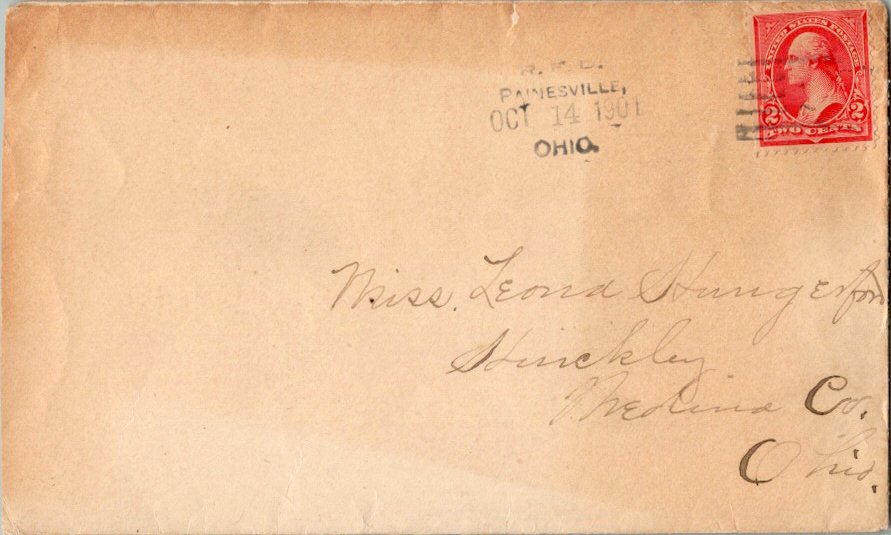 R. F. D.
PAINESVILLE,
OCT 14 1901
OHIO.
UNITED STATES POSTAGE
2 2
TWO CENTS
Miss. Leona Hungerford
Hinckley
Medina Co.
Ohio.